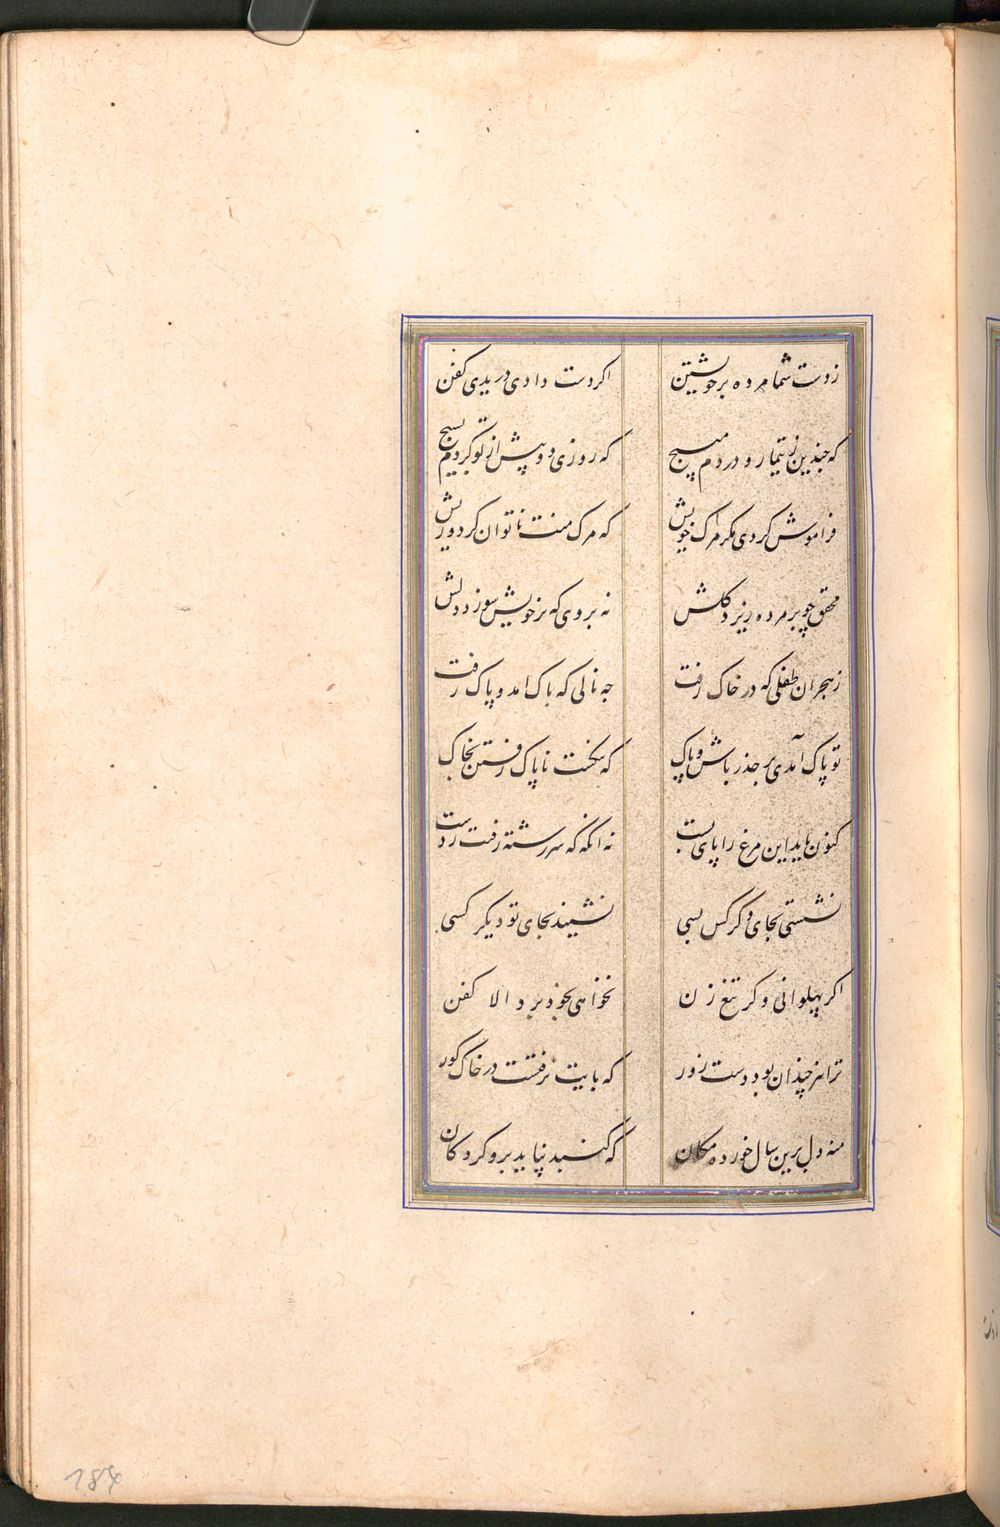 زدست شما مرده بر خویشتن اکر دست دادی دریدی کفن
که چندین ز تیمار و دردم مپیچ که روزی دو پیش از تو کردم بسیج
فراموش کردی مکر مرک خویش که مرک منت ناتوان کرد و ریش
محقق چو بر مرده ریزد کلش نه بر وی که بر خویش سوزد دلش
زهجران طفلی که در خاک رفت چه نالی که پاک امد و پاک رفت
تو پاک آمدی بر حذر باش و پاک که ننکست ناپاک رفتن بخاک
کنون باید این مرغ را پای بست نه انکه که سررشته رفت زدست
نشستی بجای دکر کس بسی نشیند بجای تو دیکر کسی
اکر پهلوانی وکر تیغ زن نخواهی بدر برد الا کفن
ترا نیز چندان بود دست زور که پایت نرفتست در خاک کور
منه دل برین سال خورده مکان که کنبد نپاید برو کردکان
184